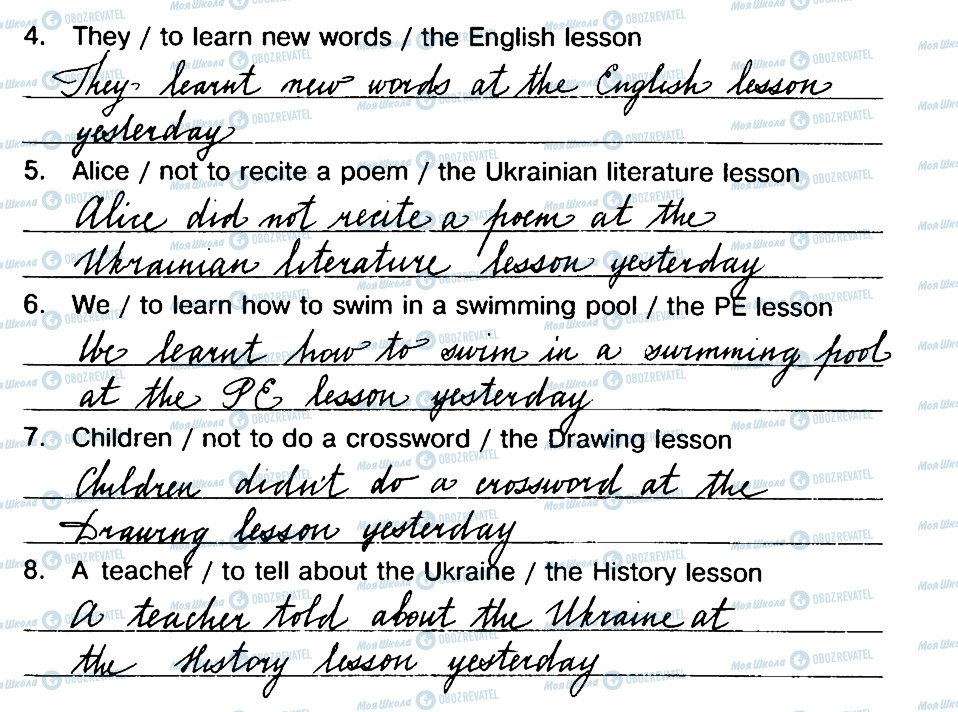 4. They / to learn new words / the English lesson
They learnt new words at the English lesson
yesterday
5. Alice / not to recite a poem / the Ukrainian literature lesson
Alice did not recite a poem at the
Ukrainian literature lesson yesterday
6. We / to learn how to swim in a swimming pool / the PE lesson
We learnt how to swim in a swimming pool
at the PE lesson yesterday
7. Children / not to do a crossword / the Drawing lesson
Children didn't do a crossword at the
Drawing lesson yesterday
8. A teacher / to tell about the Ukraine / the History lesson
A teacher told about the Ukraine at
the History lesson yesterday